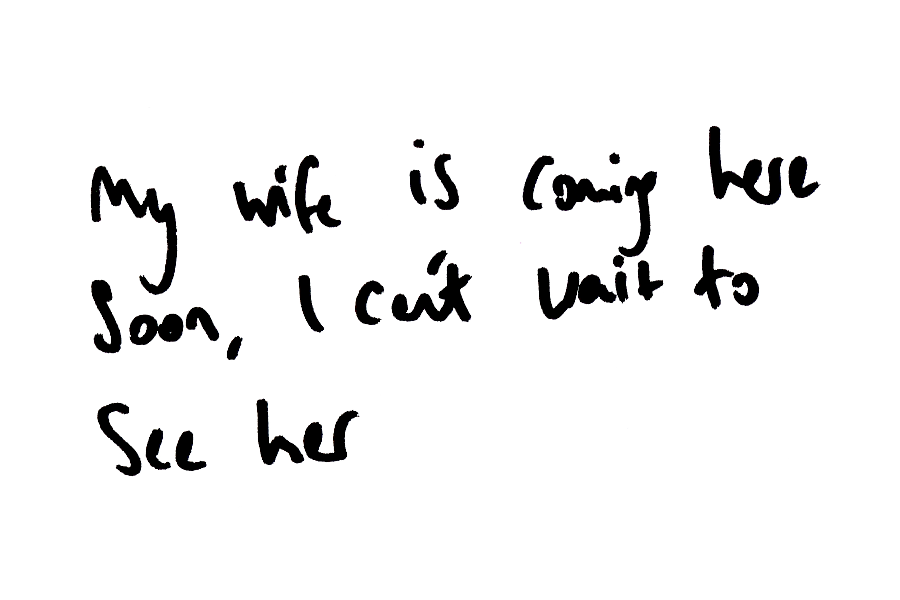 My wife is coming here
soon, I can't wait to
see her